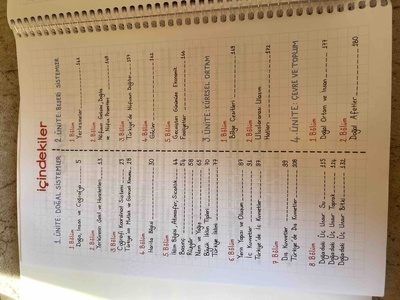 içindekiler
1. ÜNİTE: DOĞAL SİSTEMLER
1. Bölüm
Doğa, İnsan ve Coğrafya 5
2. Bölüm
Dünya'nın Şekli ve Hareketleri 13
3. Bölüm
Coğrafi Koordinat Sistemi 23
Türkiye'nin Mutlak ve Göreceli Konumu 28
4. Bölüm
Harita Bilgisi 30
5. Bölüm
İklim Bilgisi, Atmosfer, Sıcaklık 44
Basınç 54
Rüzgar 58
Nem ve Yağış 63
Büyük İklim Tipleri 70
Türkiye İklimi 77
6. Bölüm
Yerin Yapısı ve Oluşum 87
İç Kuvvetler 91
Türkiye'de İç Kuvvetler 97
7. Bölüm
Dış Kuvvetler 99
Türkiye'de Dış Kuvvetler 108
8. Bölüm
Doğadaki Üç Unsur: Su 115
Doğadaki Üç Unsur: Toprak 126
Doğadaki Üç Unsur: Bitki 132
2. ÜNİTE: BEŞERİ SİSTEMLER
1. Bölüm
Yerleşmeler 141
2. Bölüm
Nüfusun Gelişimi, Dağılışı
ve Nüfus Piramitleri
3. Bölüm
Türkiye'de Nüfusun Dağılışı
4. Bölüm
Göçler 161
5. Bölüm
Geçmişten Günümüze Ekonomik
Faaliyetler 166
3. ÜNİTE: KÜRESEL ORTAM
1. Bölüm
Bölge Çeşitleri
2. Bölüm
Uluslararası Ulaşım
Hatları 172
4. ÜNİTE: ÇEVRE VE TOPLUM
1. Bölüm
Doğal Ortam ve İnsan 177
2. Bölüm
Doğal Afetler 180